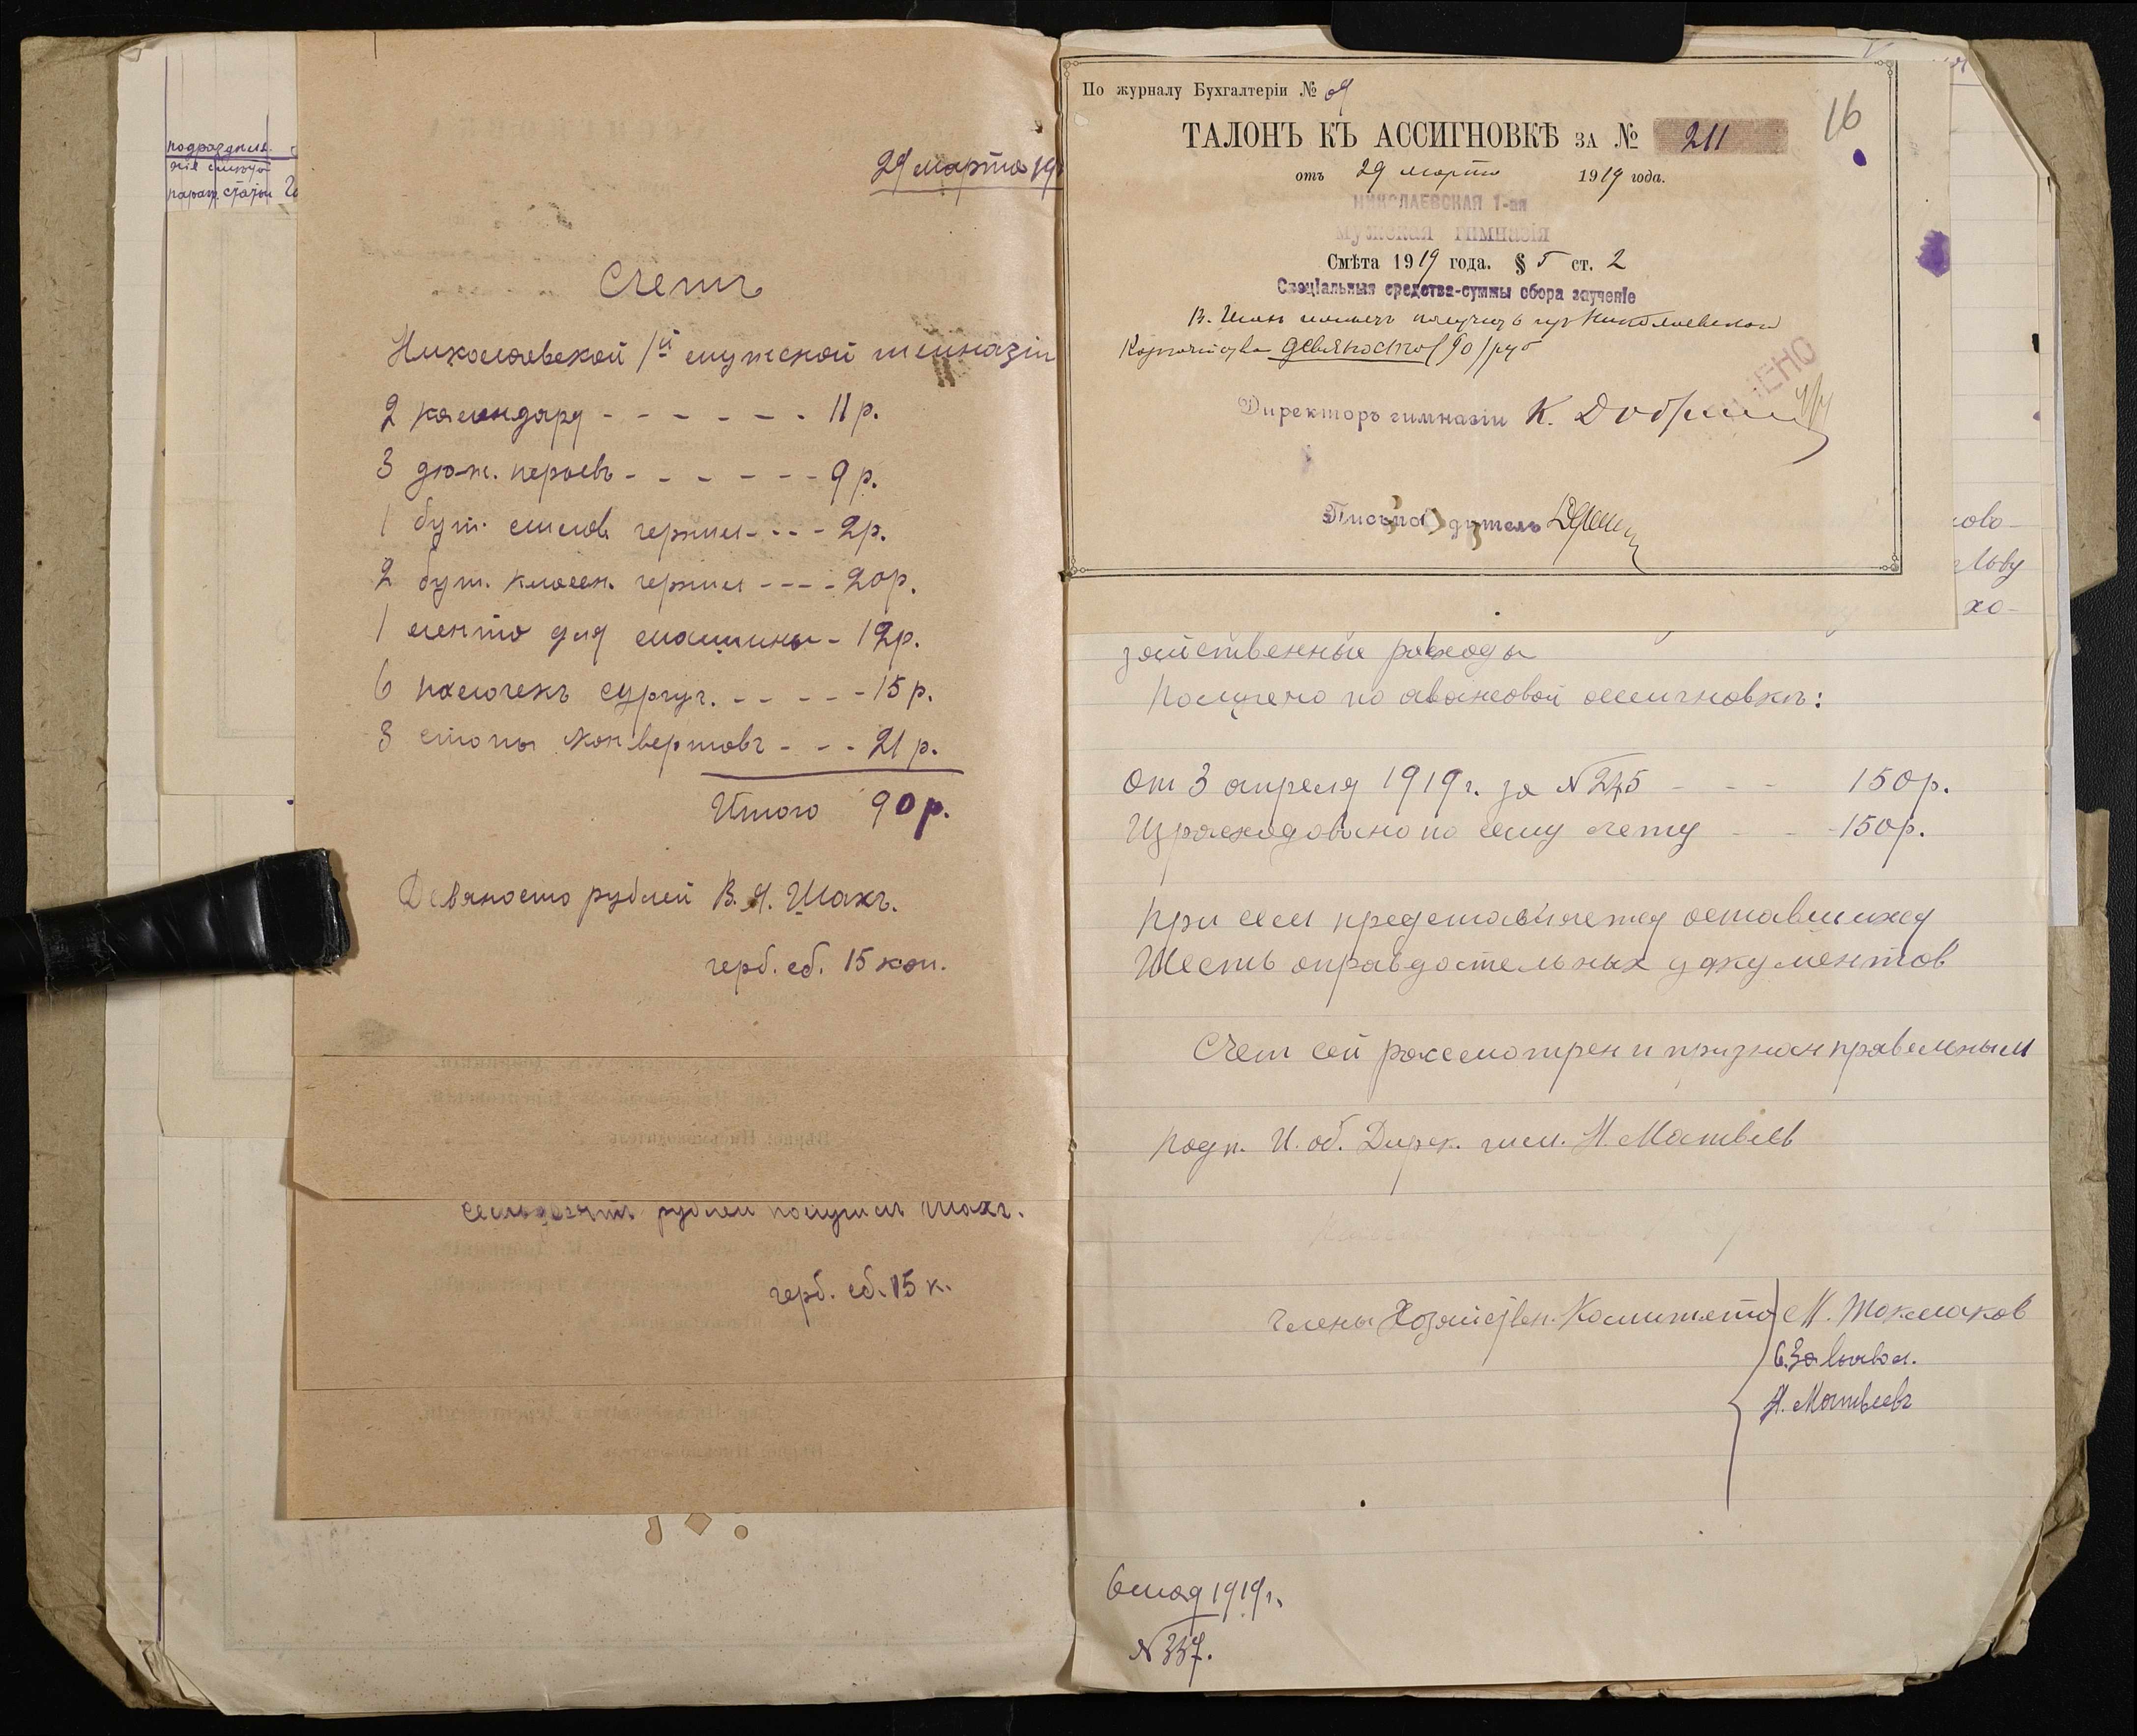 подраздѣл.
парагр. статьи
29 марта 191
Счетъ
Николаевской 1й мужской гимназіи
2 календаря - - - - - - 11 р.
3 дюж. перьевъ - - - - - - 9 р.
1 бут. чернил - - - 2р.
2 бут. чернил - - - - 20р.
1 лента для машины - 12р.
6 палочекъ сургуч. - - - - - 15 р.
3 стопы конвертовъ - - - 21 р.
Итого 90 р.
Девяносто рублей В. Я. Шахъ.
герб. сб. 15 коп.
семьдесятъ рублей получилъ Шахъ.
герб. сб. 15 к.
По журналу Бухгалтеріи №
16
ТАЛОНЪ КЪ АССИГНОВКѢ ЗА № 211
отъ 29 марта 1919 года.
НИКОЛАЕВСКАЯ 1-ая
мужская гимназія
Смѣта 1919 года. § 5 ст. 2
Спеціальныя средства-суммы сбора заученіе
В. Шахъ можетъ получить изъ Николаевскаго
Казначейства девяносто (90) руб
Директоръ гимназіи К. Добр
Письмоводитель
ково-
Льву
хо-
зяйственные расходы
Получено по авансовой ассигновкѣ:
От 3 апреля 1919 г. за № 245 - - - 150р.
Израсходовано по сему счету - - - 150р.
При сем представляется оставшихся
Шесть оправдательных документов
Счет сей рассмотрен и признан правельным
Подп. И. об. Дирек. гим. Н. Матвеев
Члены Хозяйствен. Комитета М. Токмаков
Н. Матвеевъ
6 мая 1919 г.
№ 337.